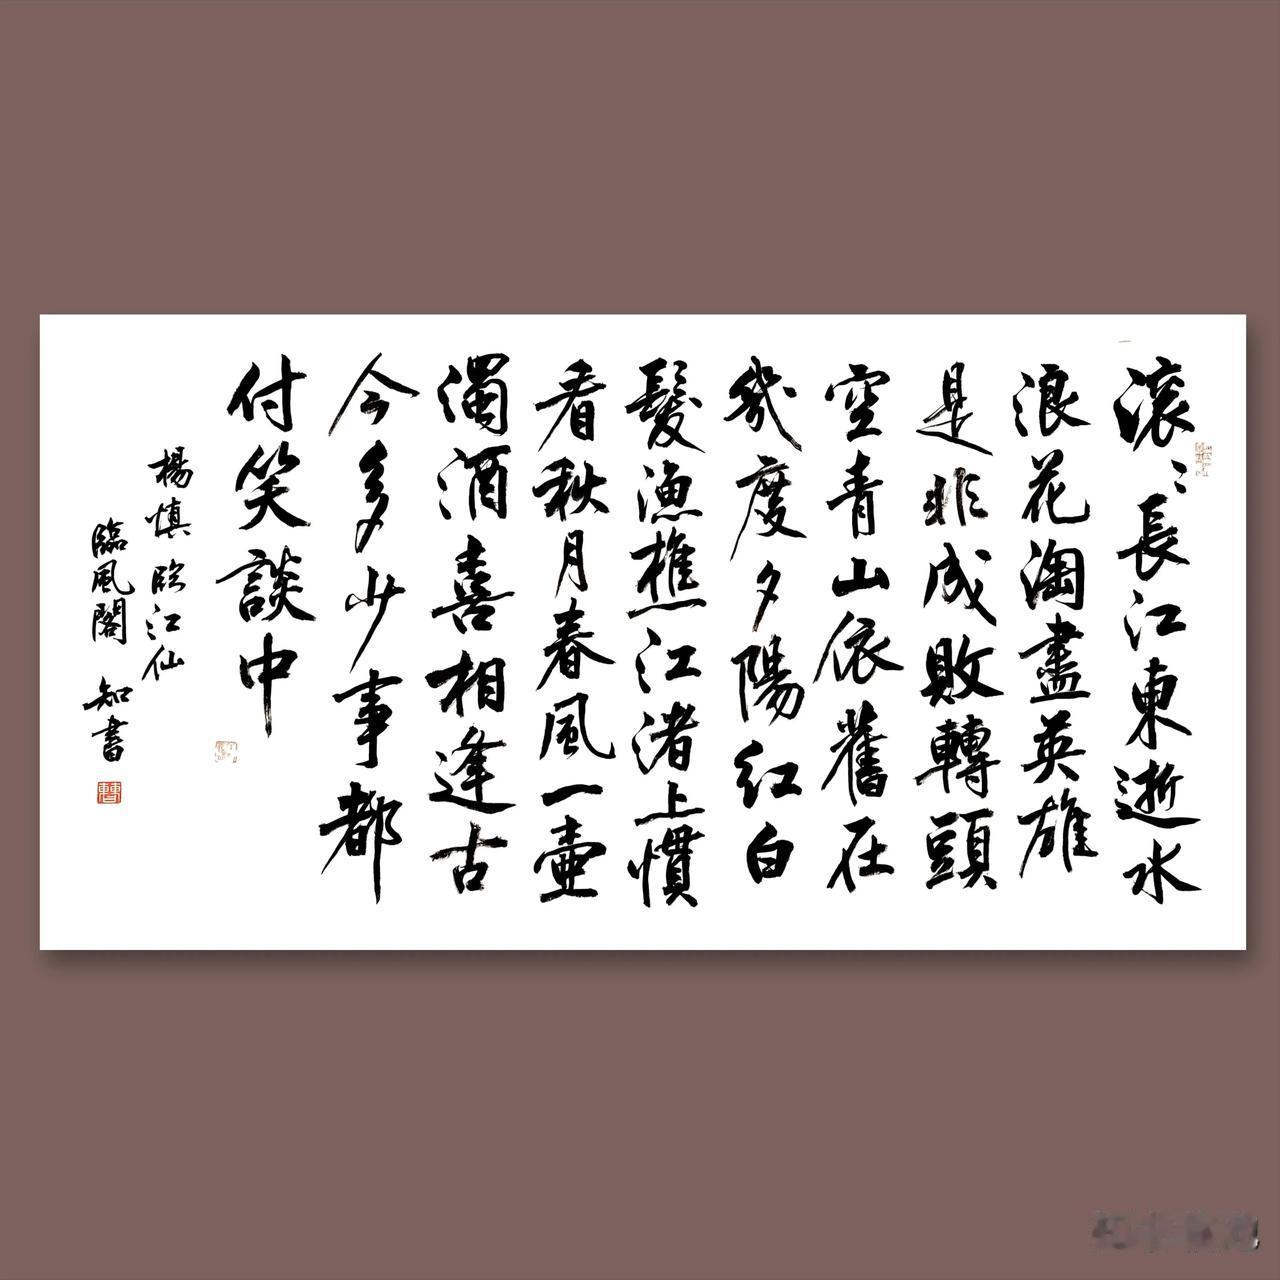 滚〻長江東逝水
浪花淘盡英雄
是非成敗轉頭
空青山依舊在
幾度夕陽紅白
髮漁樵江渚上慣
看秋月春風一壺
濁酒喜相逢古
今多少事都
付笑談中
楊慎臨江仙
臨風閣 知書